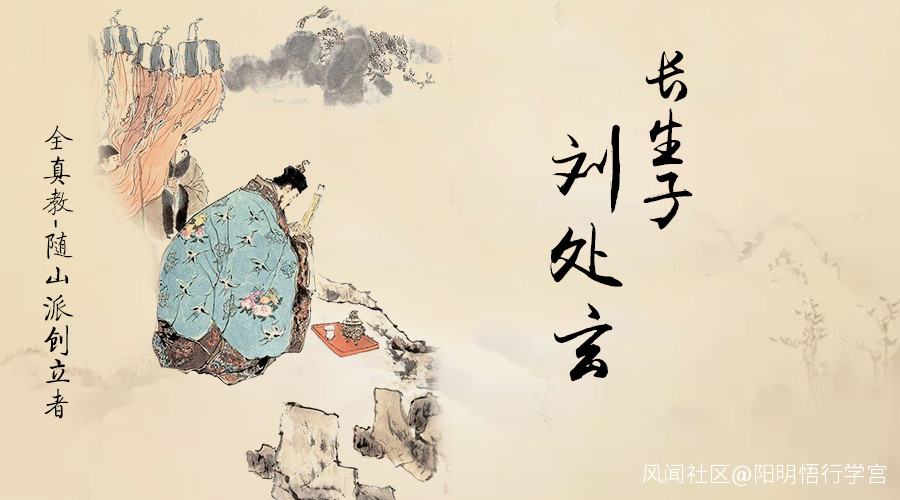 长生子
刘处玄
全真教-随山派创立者
风闻社区@阳明悟行学宫